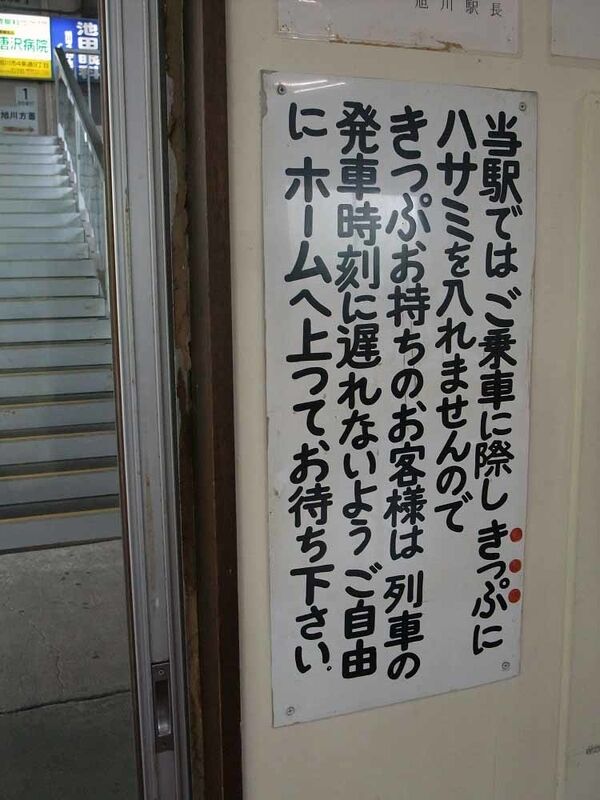 旭川駅長
当駅では ご乗車に際し きっぷに
ハサミを入れませんので
きっぷお持ちのお客様は 列車の
発車時刻に遅れないよう ご自由
に ホームへ上つてお待ち下さい.
唐沢病院
旭川市4条通9丁目
池田
1
旭川方面